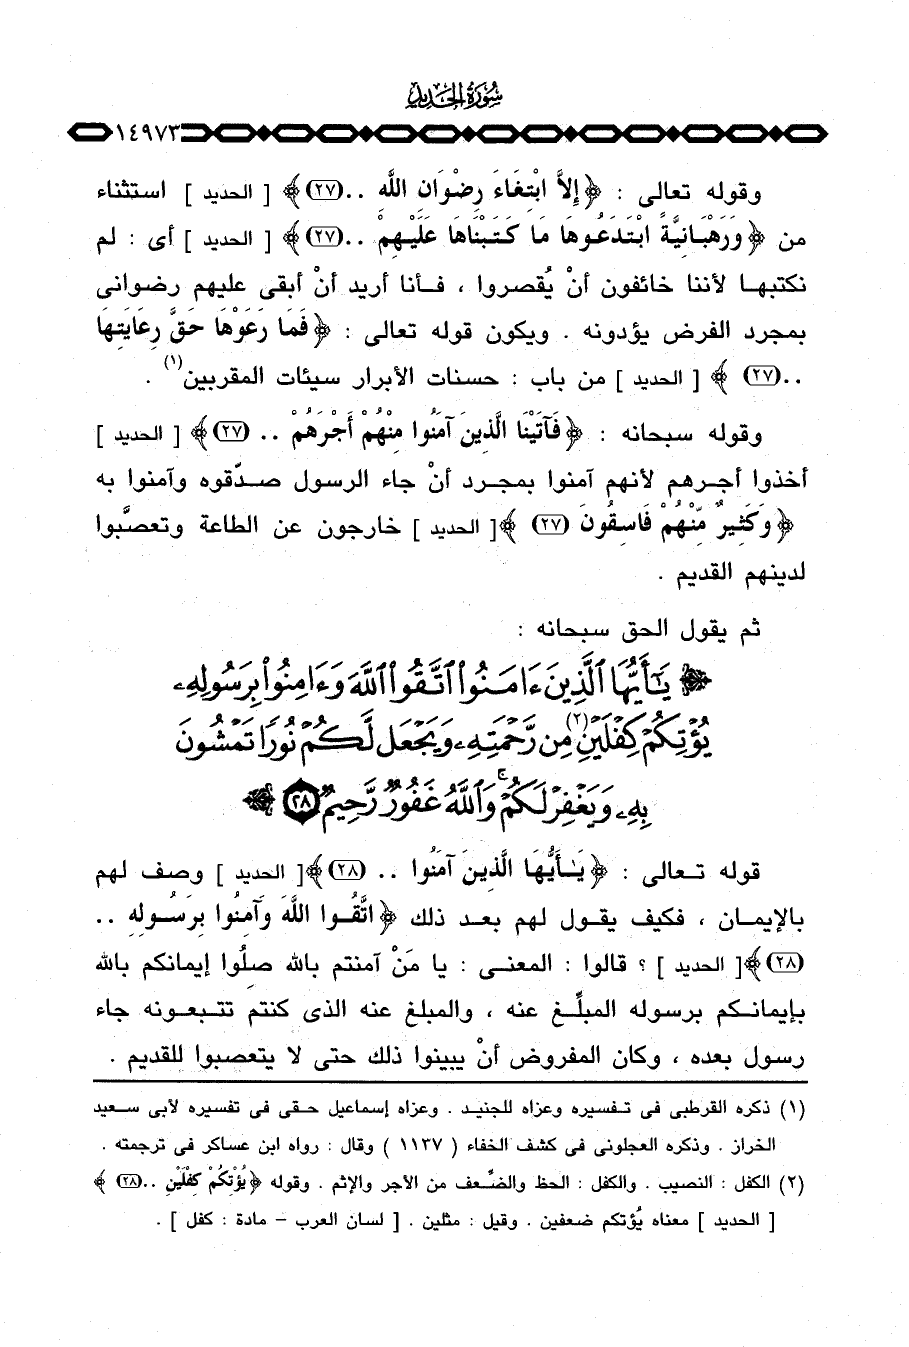 سُورَةُ الحَدِيدِ
١٤٩٧٣
وقوله تعالى : ﴿ إِلاَّ ابْتِغَاءَ رِضْوَانِ اللَّهِ .. (٢٧) ﴾ [ الحديد ] استثناء
من ﴿ وَرَهْبَانِيَّةً ابْتَدَعُوهَا مَا كَتَبْنَاهَا عَلَيْهِمْ .. (٢٧) ﴾ [ الحديد ] أى : لم
نكتبهـا لأننا خائفون أنْ يُقصروا ، فـأنا أريد أنْ أبقى عليهم رضوانى
بمجرد الفرض يؤدونه . ويكون قوله تعالى : ﴿ فَمَا رَعَوْهَا حَقَّ رِعَايَتِهَا
.. (٢٧) ﴾ [ الحديد ] من باب : حسنات الأبرار سيئات المقربين(١) .
وقوله سبحانه : ﴿ فَآتَيْنَا الَّذِينَ آمَنُوا مِنْهُمْ أَجْرَهُمْ .. (٢٧) ﴾ [ الحديد ]
أخذوا أجـرهم لأنهم آمنوا بمجـرد أنْ جاء الرسول صـدّقوه وآمنوا به
﴿ وَكَثِيرٌ مِّنْهُمْ فَاسِقُونَ (٢٧) ﴾ [ الحديد ] خارجون عن الطاعة وتعصبَّوا
لدينهم القديم .
ثم يقول الحق سبحانه :
﴿ يَٰٓأَيُّهَا ٱلَّذِينَ ءَامَنُوا۟ ٱتَّقُوا۟ ٱللَّهَ وَءَامِنُوا۟ بِرَسُولِهِۦ
يُؤْتِكُمْ كِفْلَيْنِ(٢) مِن رَّحْمَتِهِۦ وَيَجْعَل لَّكُمْ نُورًا تَمْشُونَ
بِهِۦ وَيَغْفِرْ لَكُمْ ۚ وَٱللَّهُ غَفُورٌ رَّحِيمٌ ٢٨ ﴾
قوله تـعالى : ﴿ يَـٰأَيُّهَا الَّذِينَ آمَنُوا .. (٢٨) ﴾ [ الحديد ] وصف لهم
بالإيمـان ، فكيف يقـول لهم بعـد ذلك ﴿ اتَّقُـوا اللَّهَ وَآمِنُوا بِرَسُولِهِ ..
(٢٨) ﴾ [ الحديد ] ؟ قالوا : المعنـى : يا مَنْ آمنتم بالله صِلُوا إيمانكم بالله
بإيمانـكم برسوله المبلِّـغ عنه ، والمبلغ عنه الذى كنتم تتـبعـونه جاء
رسول بعده ، وكان المفروض أنْ يبينوا ذلك حتى لا يتعصبوا للقديم .
(١) ذكره القرطبى فى تـفسيره وعزاه للجنيـد . وعزاه إسماعيل حـقى فى تفسيره لأبى سـعيد
الخراز . وذكره العجلونى فى كشف الخفاء ( ١١٣٧ ) وقال : رواه ابن عساكر فى ترجمته .
(٢) الكفل : النصيب . والكفل : الحظ والضِّعف من الأجر والإثم . وقوله ﴿ يُؤْتِكُمْ كِفْلَيْنِ .. (٢٨) ﴾
[ الحديد ] معناه يُؤتكم ضعفين . وقيل : مثلين . [ لسان العرب – مادة : كفل ] .